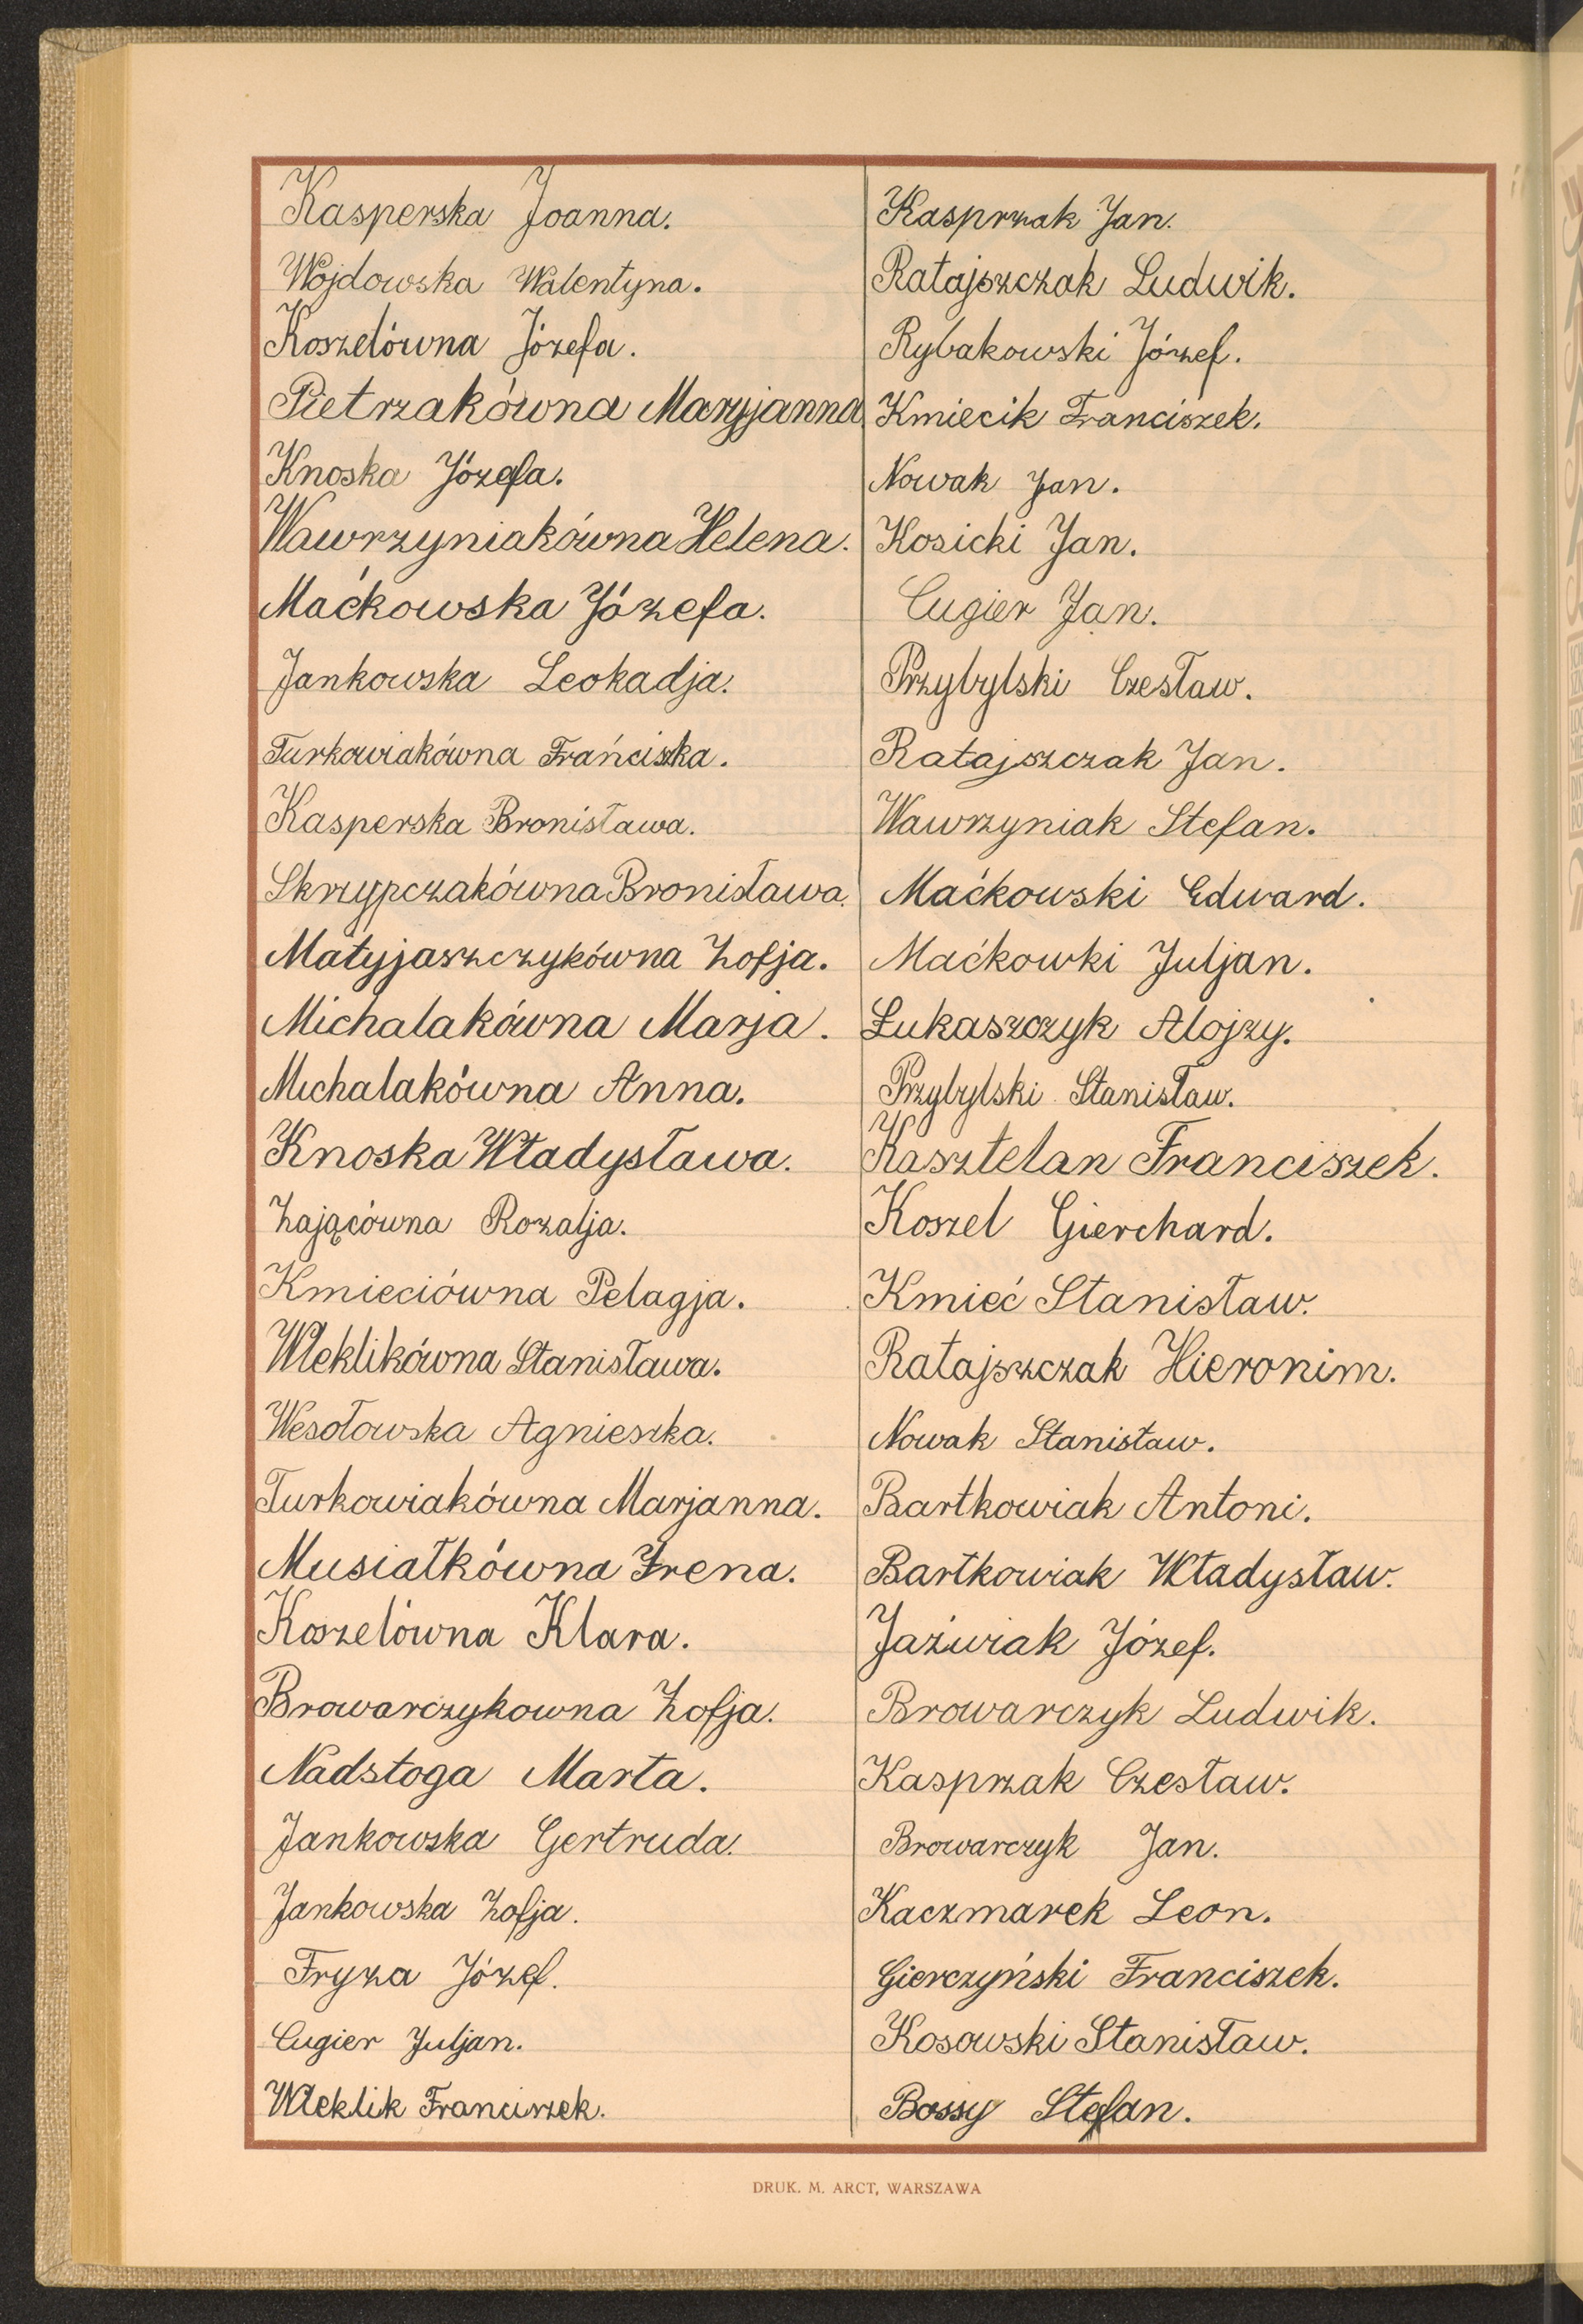 Kasperska Joanna.
Wojdowska Walentyna.
Koszelówna Józefa.
Pietrzakówna Maryjanna
Knoska Józefa.
Wawrzyniakówna Helena.
Maćkowska Józefa.
Jankowska Leokadja.
Turkowiakówna Frańciszka.
Kasperska Bronisława.
Skrzypczakówna Bronisława.
Matyjaszczykówna Zofja.
Michalakówna Marja.
Michalakówna Anna.
Knoska Władysława.
Zającówna Rozalja.
Kmieciówna Pelagja.
Wleklikówna Stanisława.
Wesołowska Agnieszka.
Turkowiakówna Marjanna.
Musiałkówna Irena.
Koszelówna Klara.
Browarczykowna Zofja.
Nadstoga Marta.
Jankowska Gertruda.
Jankowska Zofja.
Fryza Józef.
Cugier Juljan.
Wleklik Franciszek.
Kasprzak Jan.
Ratajszczak Ludwik.
Rybakowski Józef.
Kmiecik Franciszek.
Nowak Jan.
Kosicki Jan.
Cugier Jan.
Przybylski Czesław.
Ratajszczak Jan.
Wawrzyniak Stefan.
Maćkowski Edward.
Maćkowki Juljan.
Łukaszczyk Alojzy.
Przybylski Stanisław.
Kasztelan Franciszek.
Koszel Gierchard.
Kmieć Stanisław.
Ratajszczak Hieronim.
Nowak Stanisław.
Bartkowiak Antoni.
Bartkowiak Władysław.
Jaźwiak Józef.
Browarczyk Ludwik.
Kasprzak Czesław.
Browarczyk Jan.
Kaczmarek Leon.
Gierczyński Franciszek.
Kosowski Stanisław.
Bossy Stefan.
DRUK. M. ARCT, WARSZAWA